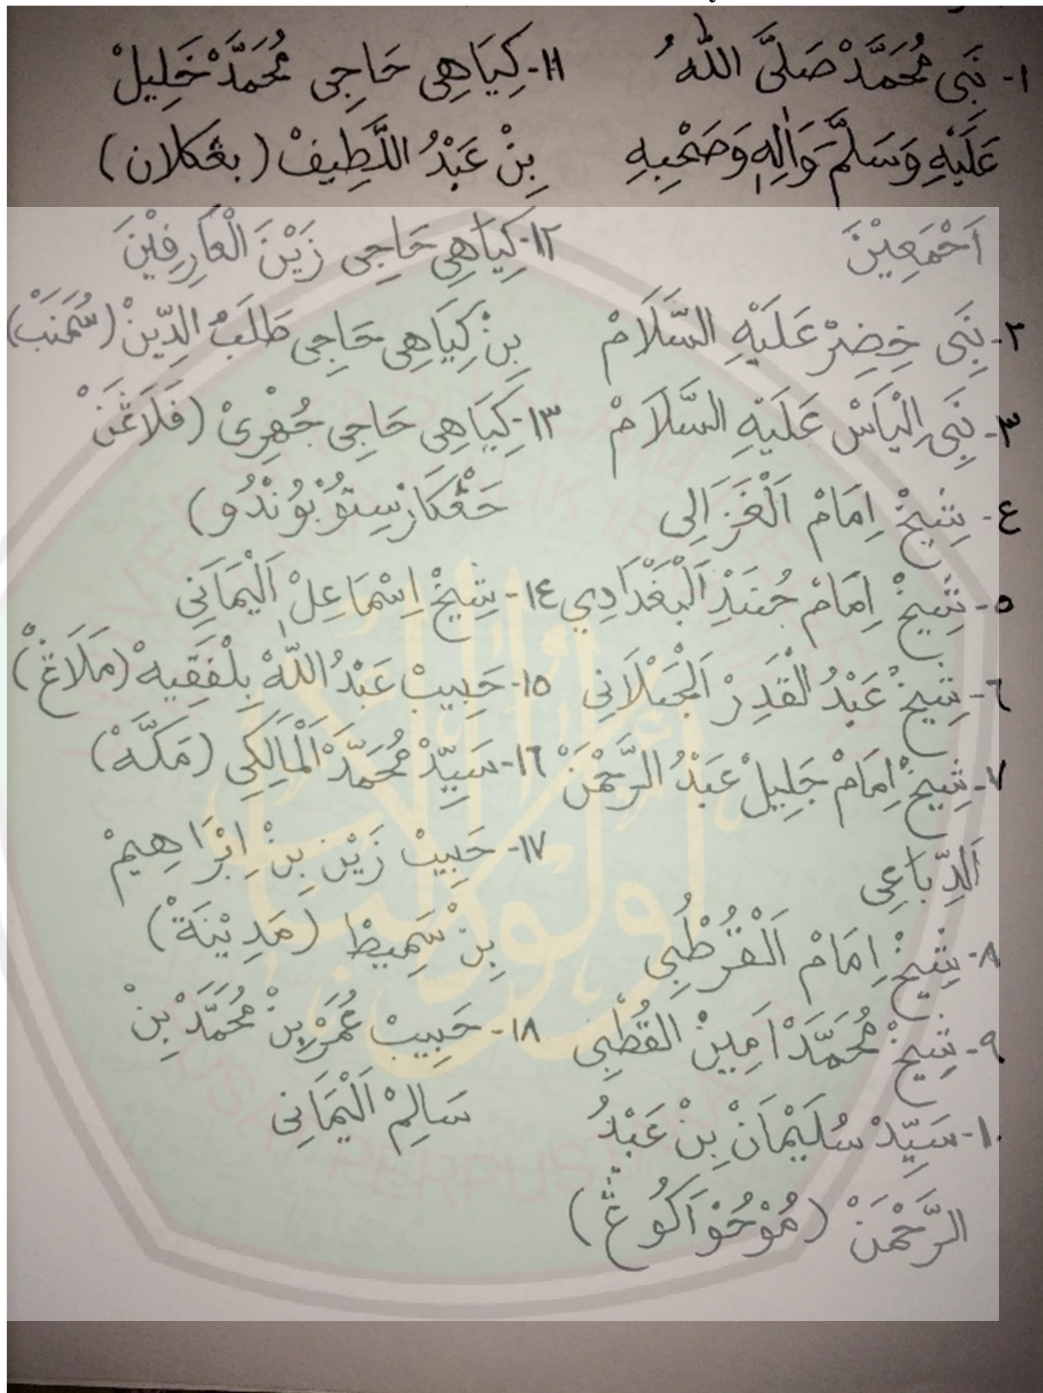 ١- نَبِى مُحَمَّدْ صَلَّى اللهُ
عَلَيْهِ وَسَلَّمَ وَاٰلِهٖ وَصَحْبِهِ
اَجْمَعِيْنَ
٢- نَبِى خِضِرْ عَلَيْهِ السَّلَامْ
٣- نَبِى اِلْيَاسْ عَلَيْهِ السَّلَامْ
٤- شَيْخْ اِمَامْ اَلْغَزَالِى
٥- شَيْخْ اِمَامْ جُنَيْدِ اَلْبَغْدَادِي
٦- شَيْخْ عَبْدُ الْقَدِرْ اَلْجَيْلَانِى
٧- شَيْخْ اِمَامْ جَلِيلْ عَبْدُ الرَّحْمَنْ
اَلدِّبَاعِى
٨- شَيْخْ اِمَامْ اَلْقُرْطُبِى
٩- شَيْخْ مُحَمَّدْ اَمِيِنْ القُطْبِى
١٠- سَيِّدْ سُلَيْمَانْ بِنْ عَبْدُ
الرَّحْمَنْ (مُوْجَوْاَكُوڠْ)
١١- كِيَاهِى حَاجِى مُحَمَّدْ خَلِيلْ
بِنْ عَبْدُ اللَّطِيفْ (بڠكلان)
١٢- كِيَاهِى حَاجِى زَيْنَ الْعَارِفِيْنَ
بِنْ كِيَاهِى حَاجِى طَلَبُ الدِّينْ (سُمَنَبْ)
١٣- كِيَاهِى حَاجِى جُهْرِىْ (فَلَاڠَنْ
جَڠْكَارْ سِتُوْبُوْنْدُو)
١٤- شَيْخْ اِسْمَاعِلْ اَلْيَمَانِي
١٥- حَبِيبْ عَبْدُ اللّٰهْ بِلْفَقِيهْ (مَلَاڠْ)
١٦- سَيِّدْ مُحَمَّدْ اَلْمَالِكِي (مَكَّةْ)
١٧- حَبِيبْ زَيْن بِنْ اِبْرَاهِيمْ
بِنْ سُمِيطْ (مَدِيْنَةْ)
١٨- حَبِيبْ عُمَرْ بِنْ مُحَمَّدْ بِنْ
سَالِمْ اَلْيَمَانِى